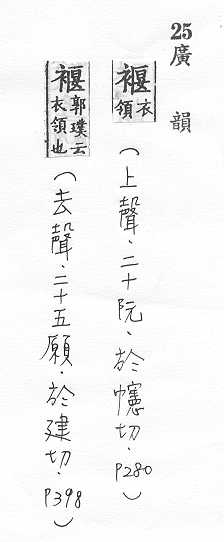 25廣韻
褗衣領(上聲.二十阮.於幰切.P280)
褗郭璞云衣領也(去聲.二十五願.於建切.P398)